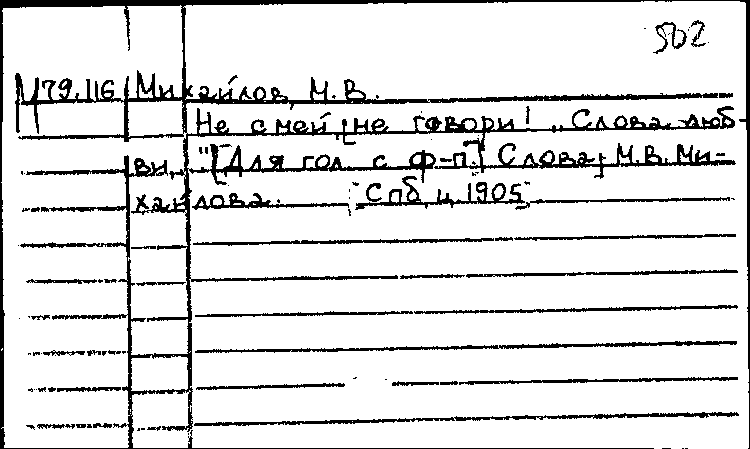 502
М79.116 Михайлов, М.В.
Не смей, не говори! „Слова люб-
ви..." [Для гол. с ф-п.] Слова М.В. Ми-
хайлова. Спб, ц. 1905.